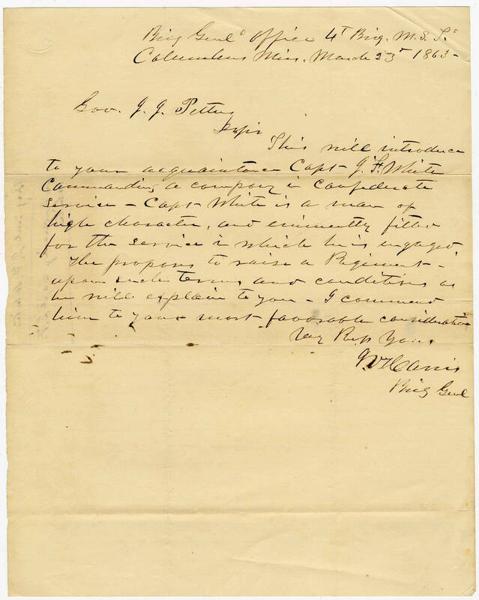 Brig Genls Office 4th Brig. M.S.T.
Columbus Miss. March 23d 1863-
Gov. J. J. Pettus
Sir
This will introduce
to your acquaintance Capt J. F. White
Commanding a company in Confederate
Service - Capt White is a man of
high character, and eminently fitted
for the service in which he is engaged.
He proposes to raise a Regiment -
upon such terms and conditions as
he will explain to you - I commend
him to your most favorable consideration
Very Resp Yours
Harris
Brig Genl